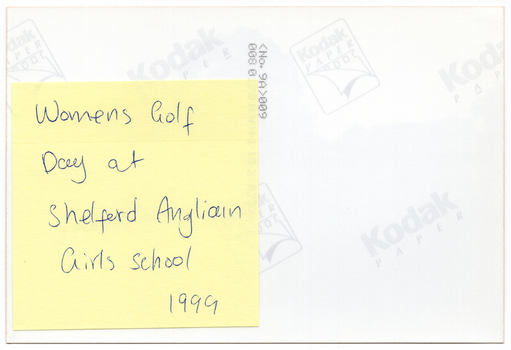 Womens Golf
Day at
Shelford Angliain
Girls school
1999
<No. 9A>009
Kodak
PAPER
Kodak
PAPER
Kodak
PAPER
Kodak
PAPER